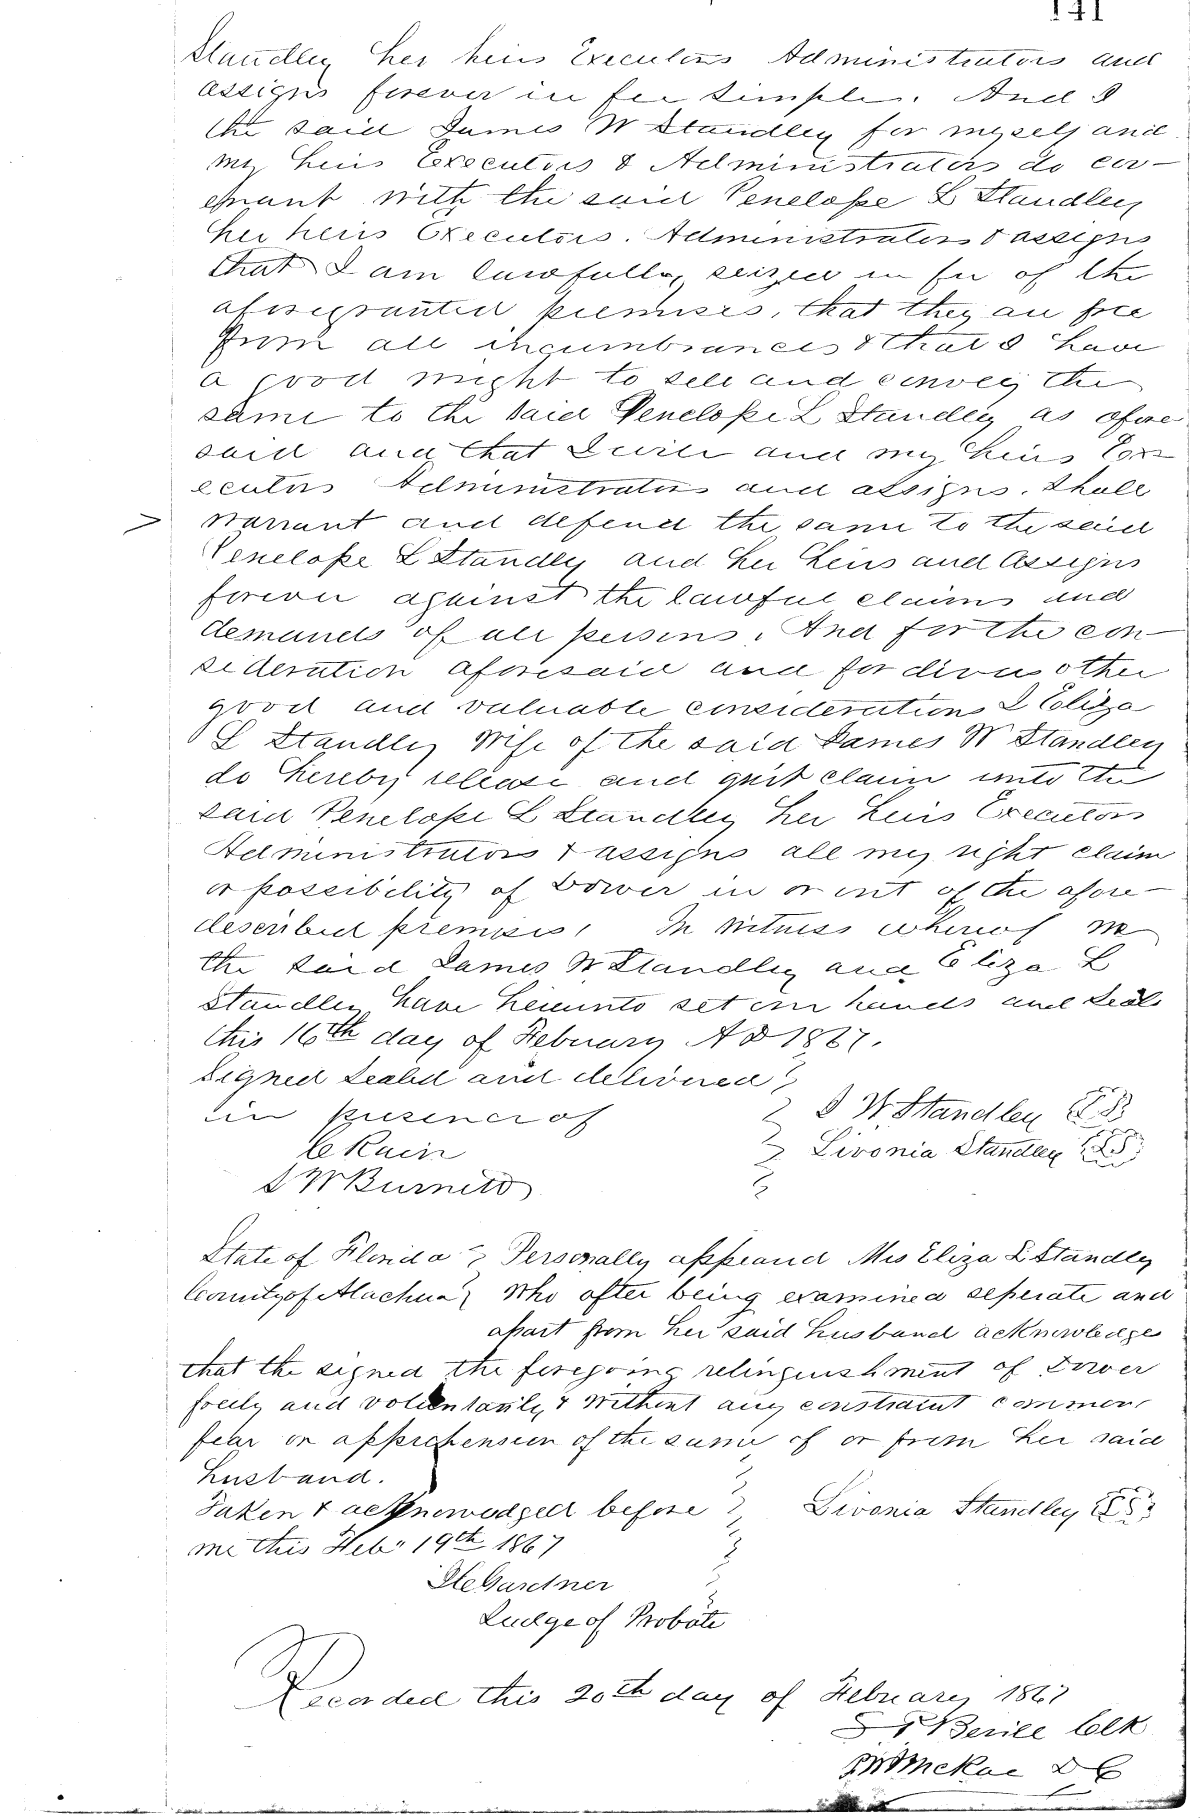 141
Standley her heirs Executors Administrators and
assigns forever in fee simple. And I
the said James W Standley for myself and
my heirs Executors & Administrators do cov-
enant with the said Penelope L Standley
her heirs Executors. Administrators & assigns
that I am lawfully seized in fee of the
aforegranted premises, that they are free
from all incumbrances & that I have
a good right to sell and convey the
same to the said Penelope L Standley as afore
said and that I will and my heirs Exe
ecutors Administrators and assigns. Shall
warrant and defend the same to the said
Penelope L Standley and her heirs and Assigns
forever against the lawful claims and
demands of all persons. And for the con-
sideration aforesaid and for divers other
good and valuable considerations I Eliza
L Standley Wife of the said James W Standley
do hereby release and quit claim unto the
said Penelope L Standley her heirs Executors
Administrators & assigns all my right claim
or possibility of Dower in or out of the afore-
described premises, In Witness whereof we
the said James W Standley and Eliza L
Standley have hereunto set our hands and seals
this 16th day of February A D 1867.
Signed Sealed and delivered
in presence of
J W Standley LS
C Rain
Livonia Standley LS
S W Burnett
State of Florida Personally appeared Mrs Eliza L Standley
County of Alachua Who after being examined seperate and
apart from her said husband acknowledges
that she signed the foregoing relinquishment of Dower
freely and voluntarily & without any constraint
fear or apprehension of the same of or from her said
husband.
Taken & acknowledged before
Livonia Standley LS
me this Feb. 19th 1867
Gardner
Judge of Probate
Recorded this 20th day of February 1867
Clk
McRae D C